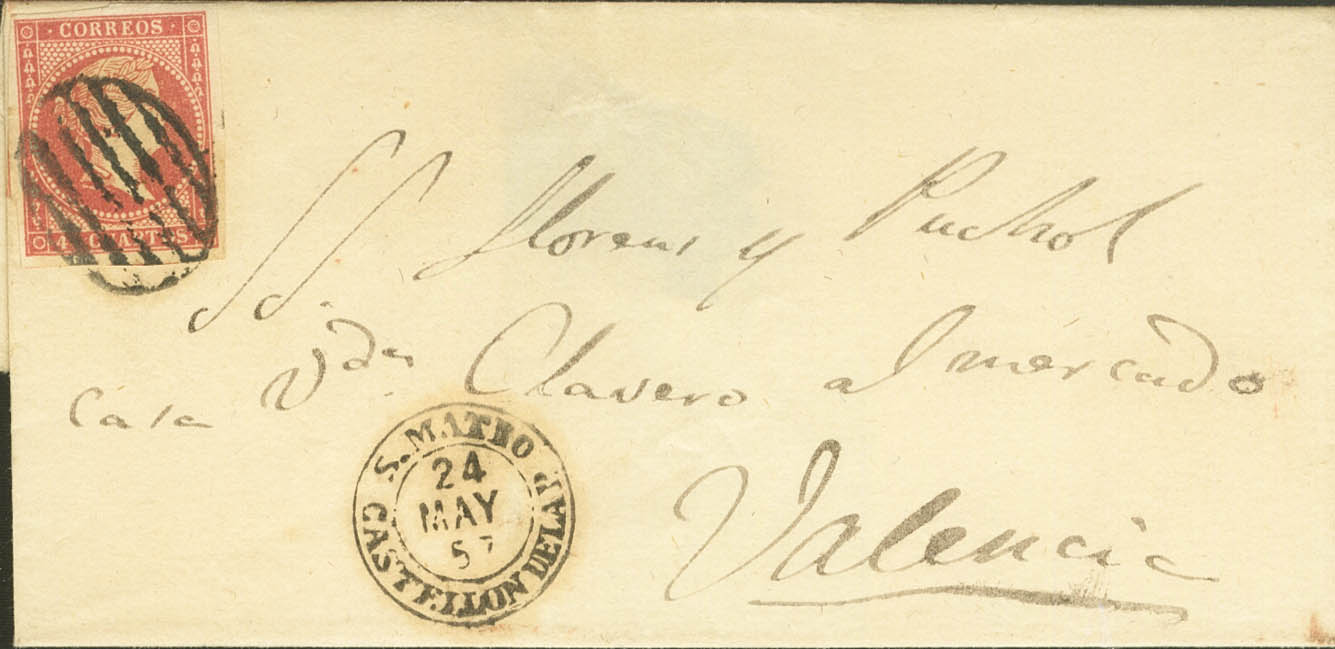 CORREOS
4 CUARTOS
SS Llorens y Puchol
Casa Vda Clavero al mercado
S. MATEO
24
MAY
57
CASTELLON DE LA P.
Valencia